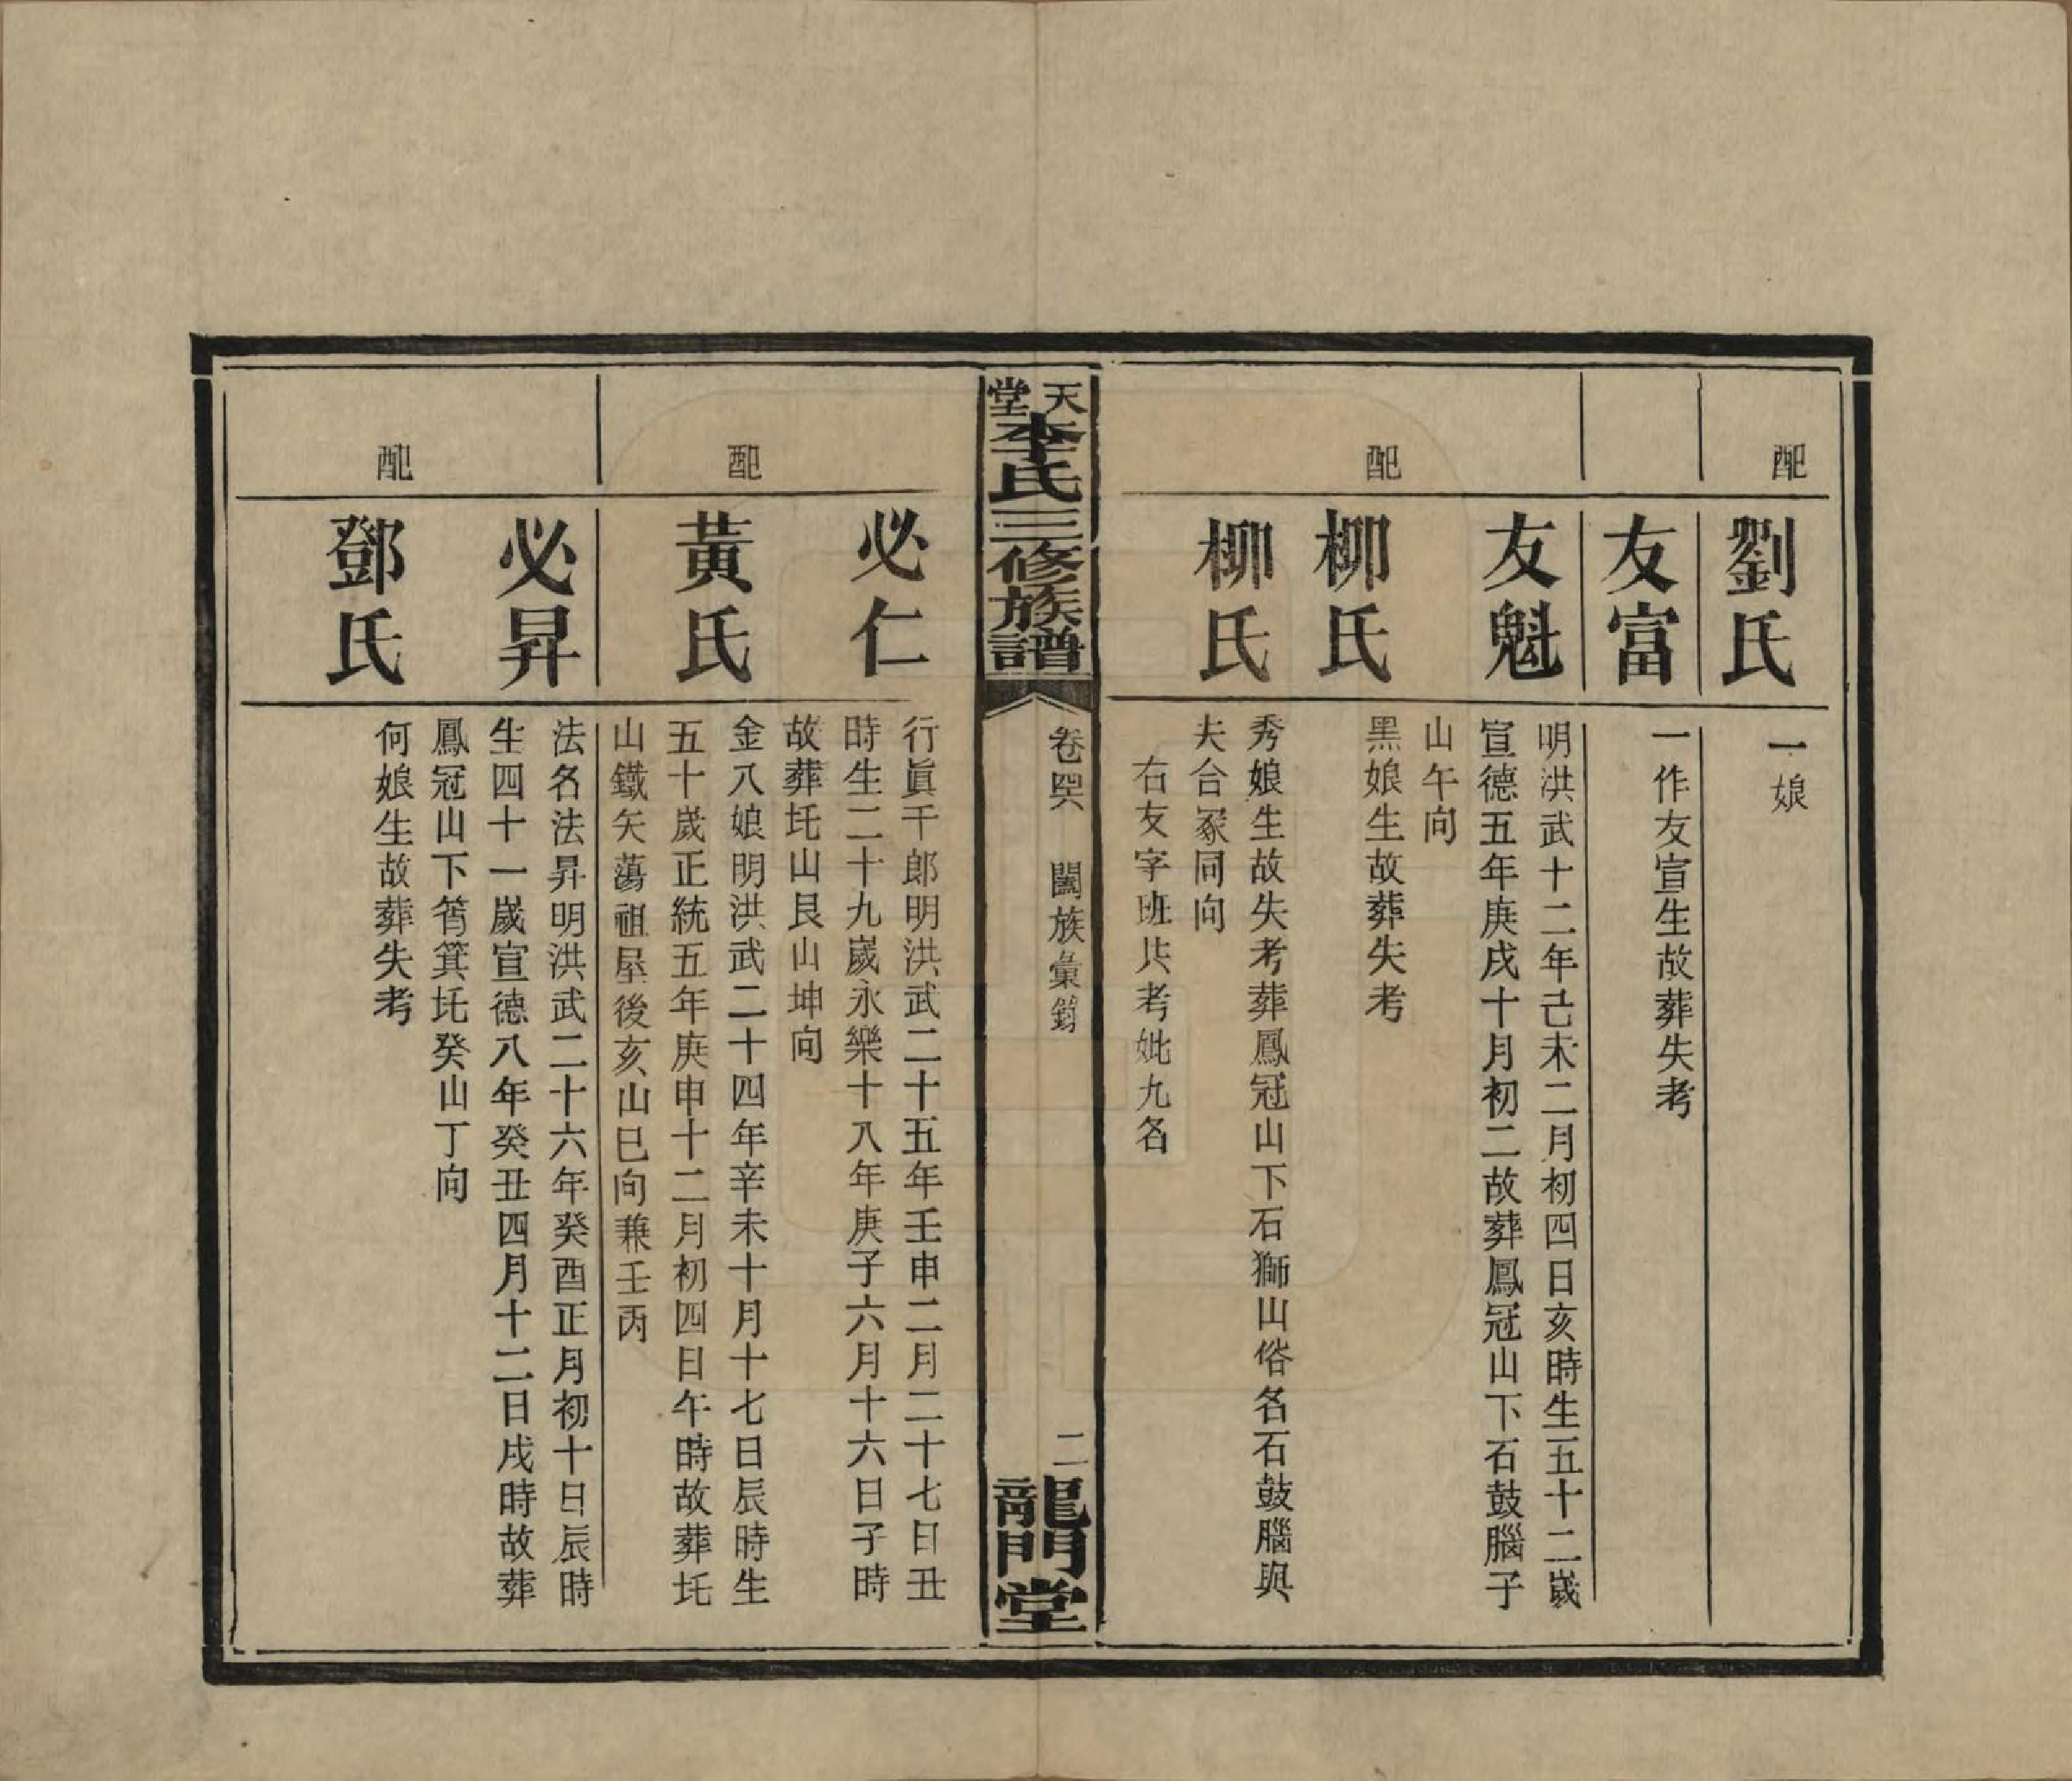 配
劉氏
一娘
友富
一作友宣生故葬失考
友魁
明洪武十二年己未二月初四日亥時生五十二歲
宣德五年庚戌十月初二故葬鳳冠山下石鼓腦子
山午向
配
柳氏
黑娘生故葬失考
柳氏
秀娘生故失考葬鳳冠山下石獅山俗名石鼓腦與
夫合冢同向
右友字班共考妣九名
天堂李氏三修族譜
卷四六
闔族彙
二
龍門堂
必仁
行眞千郎明洪武二十五年壬申二月二十七日丑
時生二十九歲永樂十八年庚子六月十六日子時
故葬圫山艮山坤向
配
黃氏
金八娘明洪武二十四年辛未十月十七日辰時生
五十歲正統五年庚申十二月初四日午時故葬圫
山鐵矢蕩祖屋後亥山巳向兼壬丙
必昇
法名法昇明洪武二十六年癸酉正月初十日辰時
生四十一歲宣德八年癸丑四月十二日戌時故葬
鳳冠山下筲箕圫癸山丁向
配
鄧氏
何娘生故葬失考